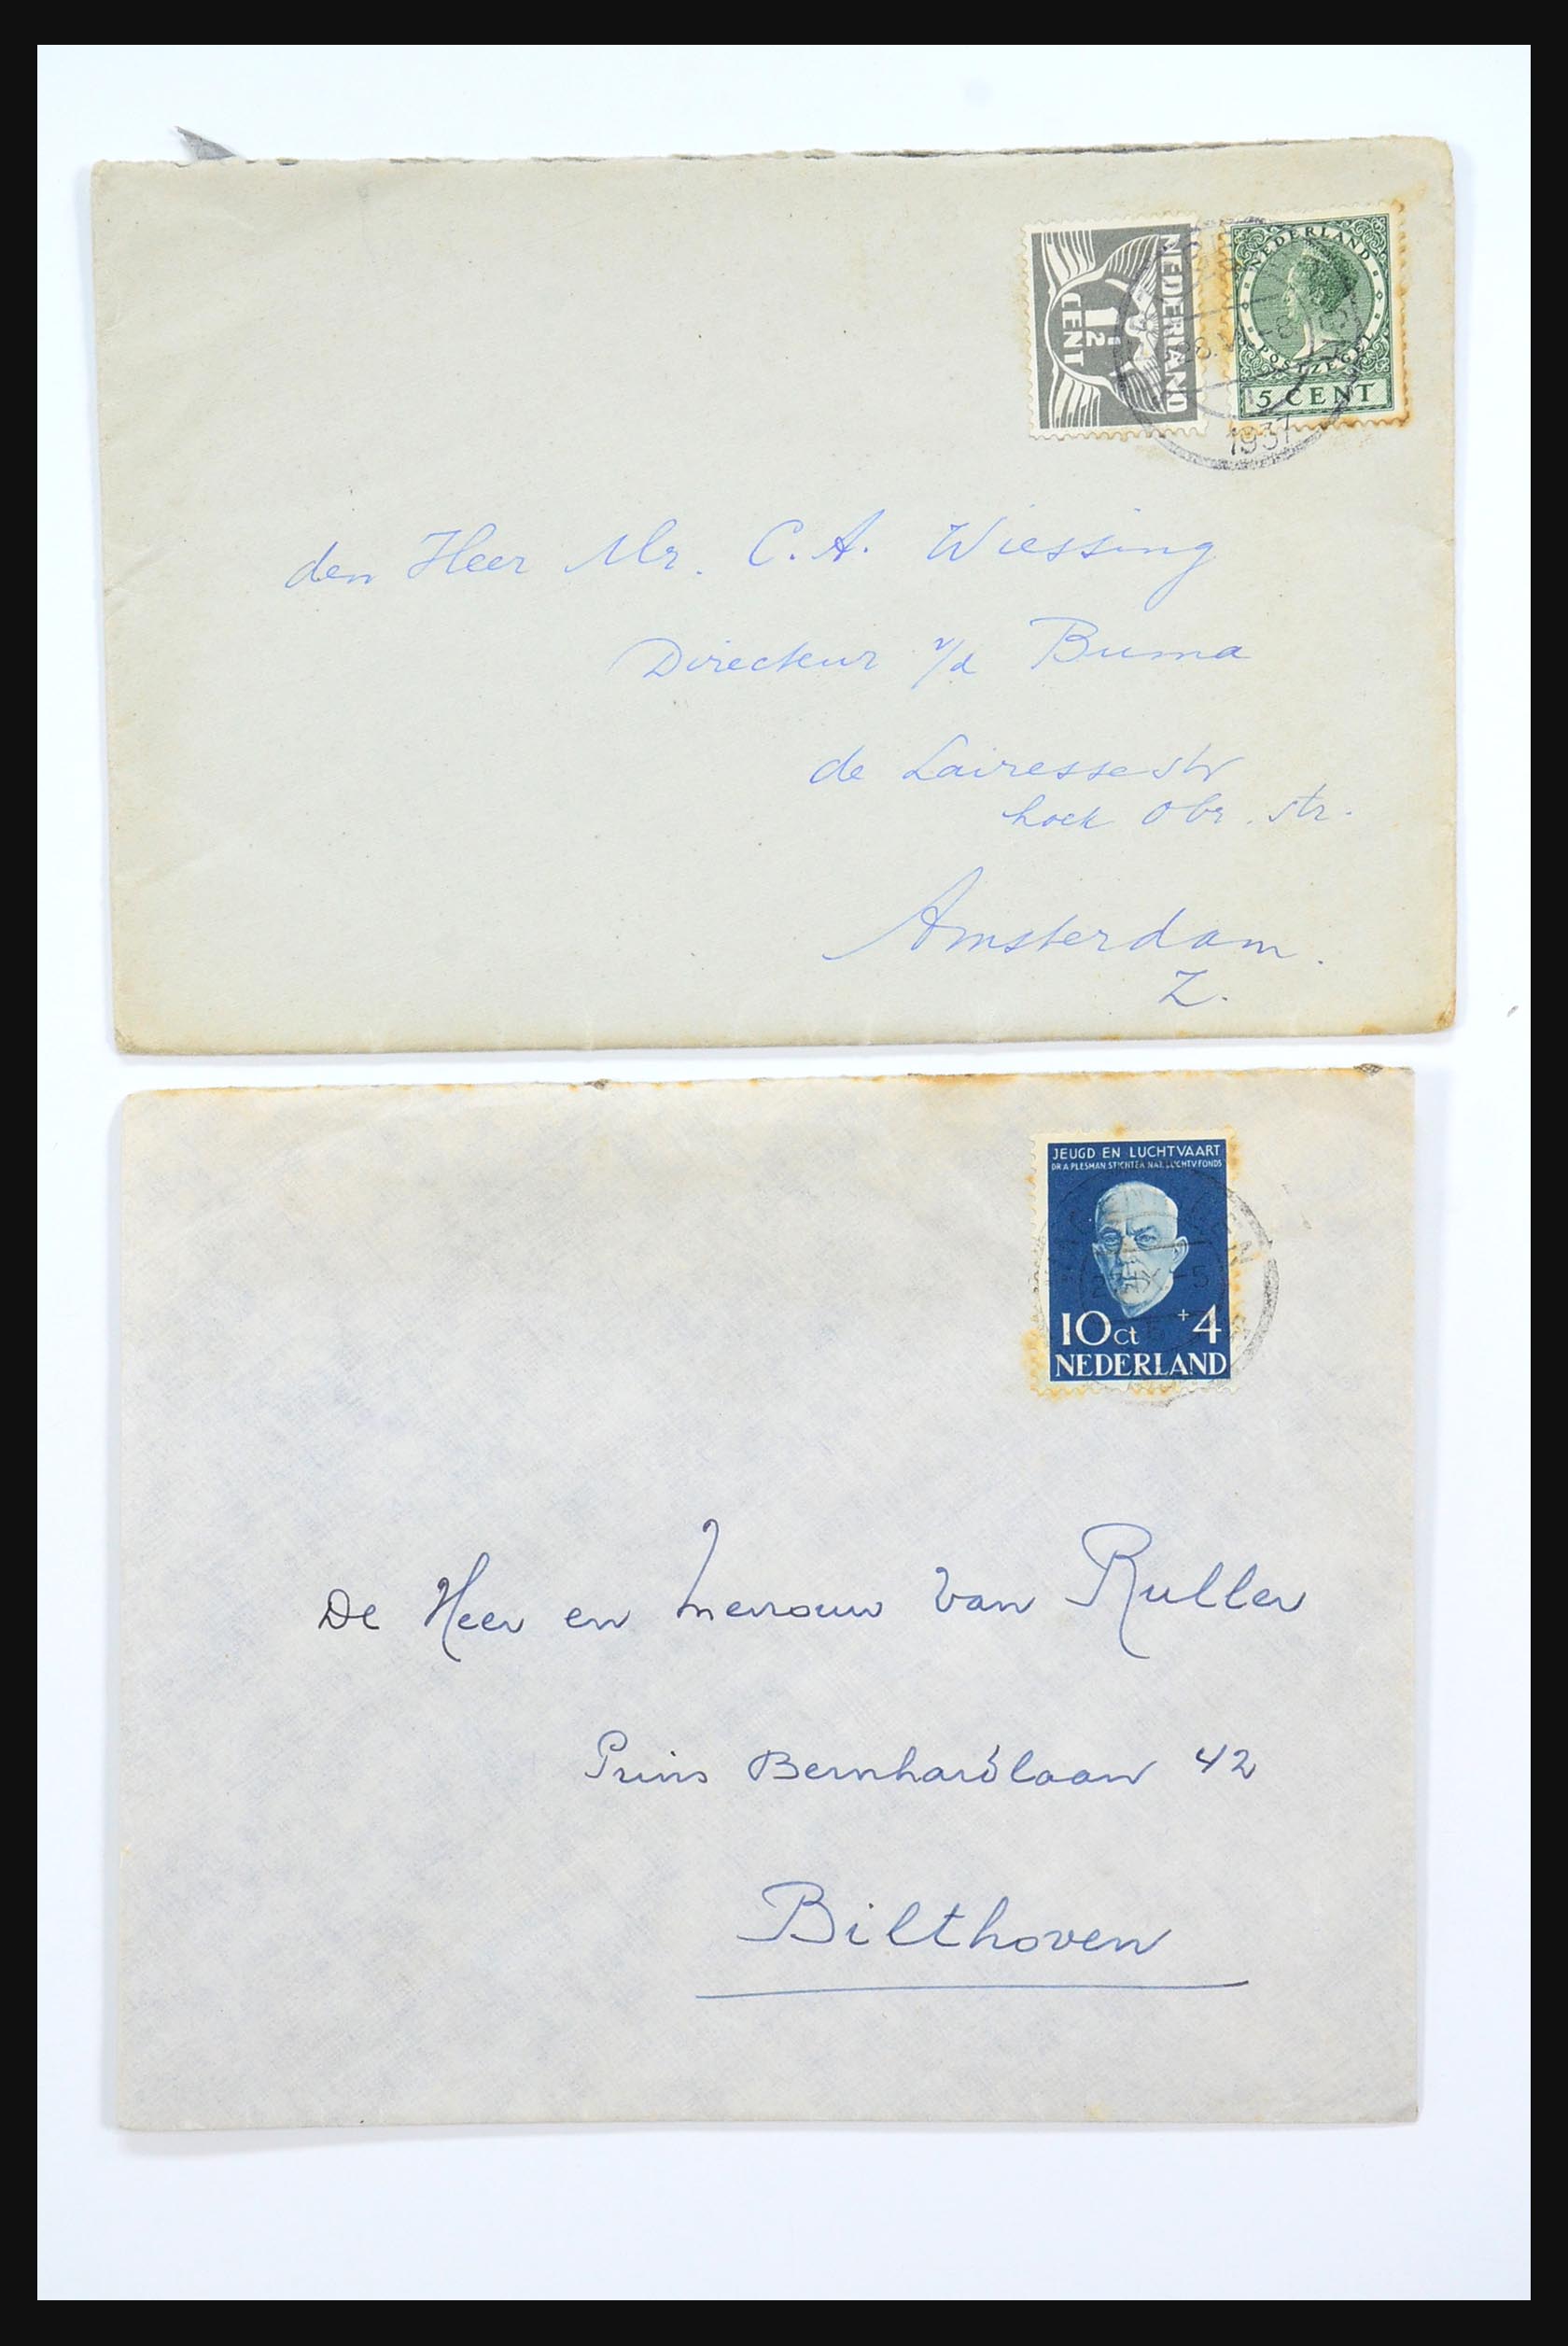 NEDERLAND
1½
CENT
NEDERLAND
POSTZEGEL
5 CENT
1937
den Heer Mr. C. A. Wiessing
Directeur v/d Buma
de Lairessestr
hoek Obr. str.
Amsterdam.
Z.
JEUGD EN LUCHTVAART
DR A PLESMAN STICHTER NAT. LUCHTV. FONDS
10 ct +4
NEDERLAND
De Heer en Mevrouw van Ruller
Prins Bernhardlaan 42
Bilthoven